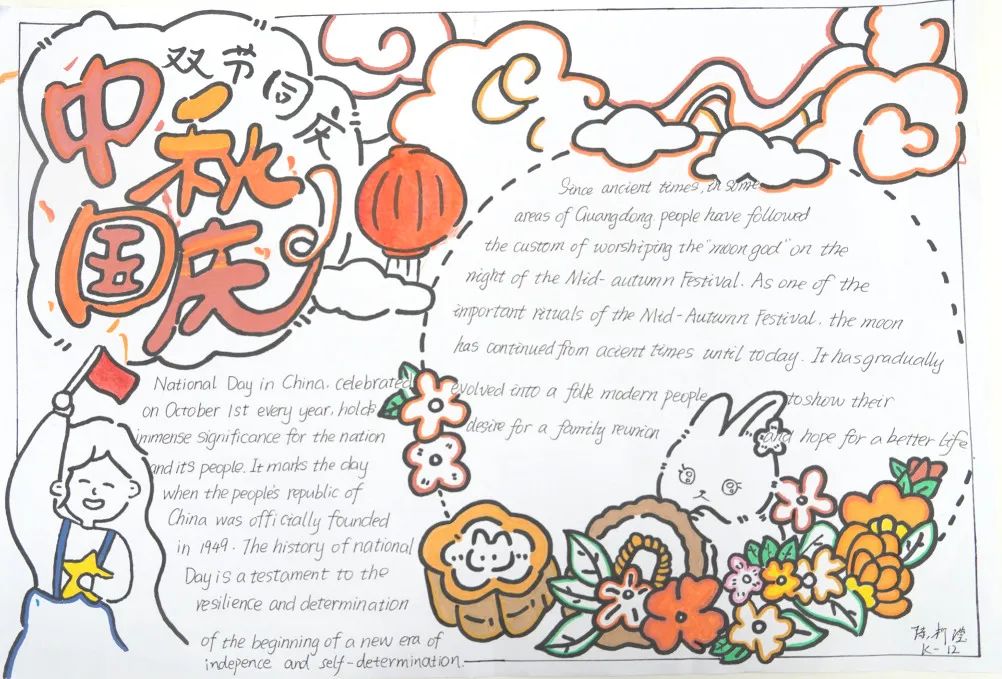 双节同庆
中秋
国庆
Since ancient times, in some
areas of Guangdong people have followed
the custom of worshiping the "moon god" on the
night of the Mid-autumn Festival. As one of the
important rituals of the Mid-Autumn Festival. the moon
has continued from acient times until today. It has gradually
evolved into a folk modern people to show their
desire for a family reunion and hope for a better life
National Day in China. celebrated
on October 1st every year, holds
immense significance for the nation
and its people. It marks the day
when the people's republic of
China was officially founded
in 1949. The history of national
Day is a testament to the
resilience and determination
of the beginning of a new era of
indepence and self-determination.
K-12